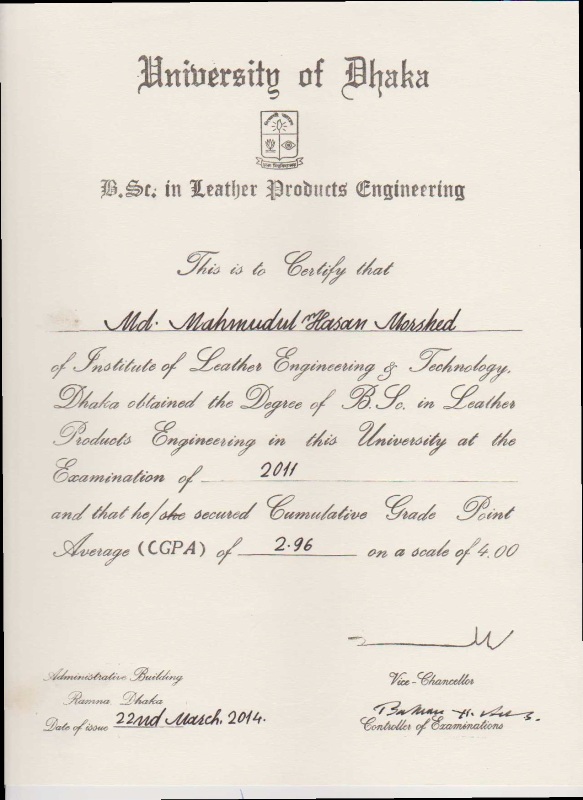 University of Dhaka
B.Sc. in Leather Products Engineering
This is to Certify that
Md. Mahmudul Hasan Morshed
of Institute of Leather Engineering & Technology,
Dhaka obtained the Degree of B.Sc. in Leather
Products Engineering in this University at the
Examination of 2011
and that he/she secured Cumulative Grade Point
Average (CGPA) of 2.96 on a scale of 4.00
Administrative Building
Ramna Dhaka
Date of issue 22nd March, 2014.
Vice-Chancellor
Controller of Examinations